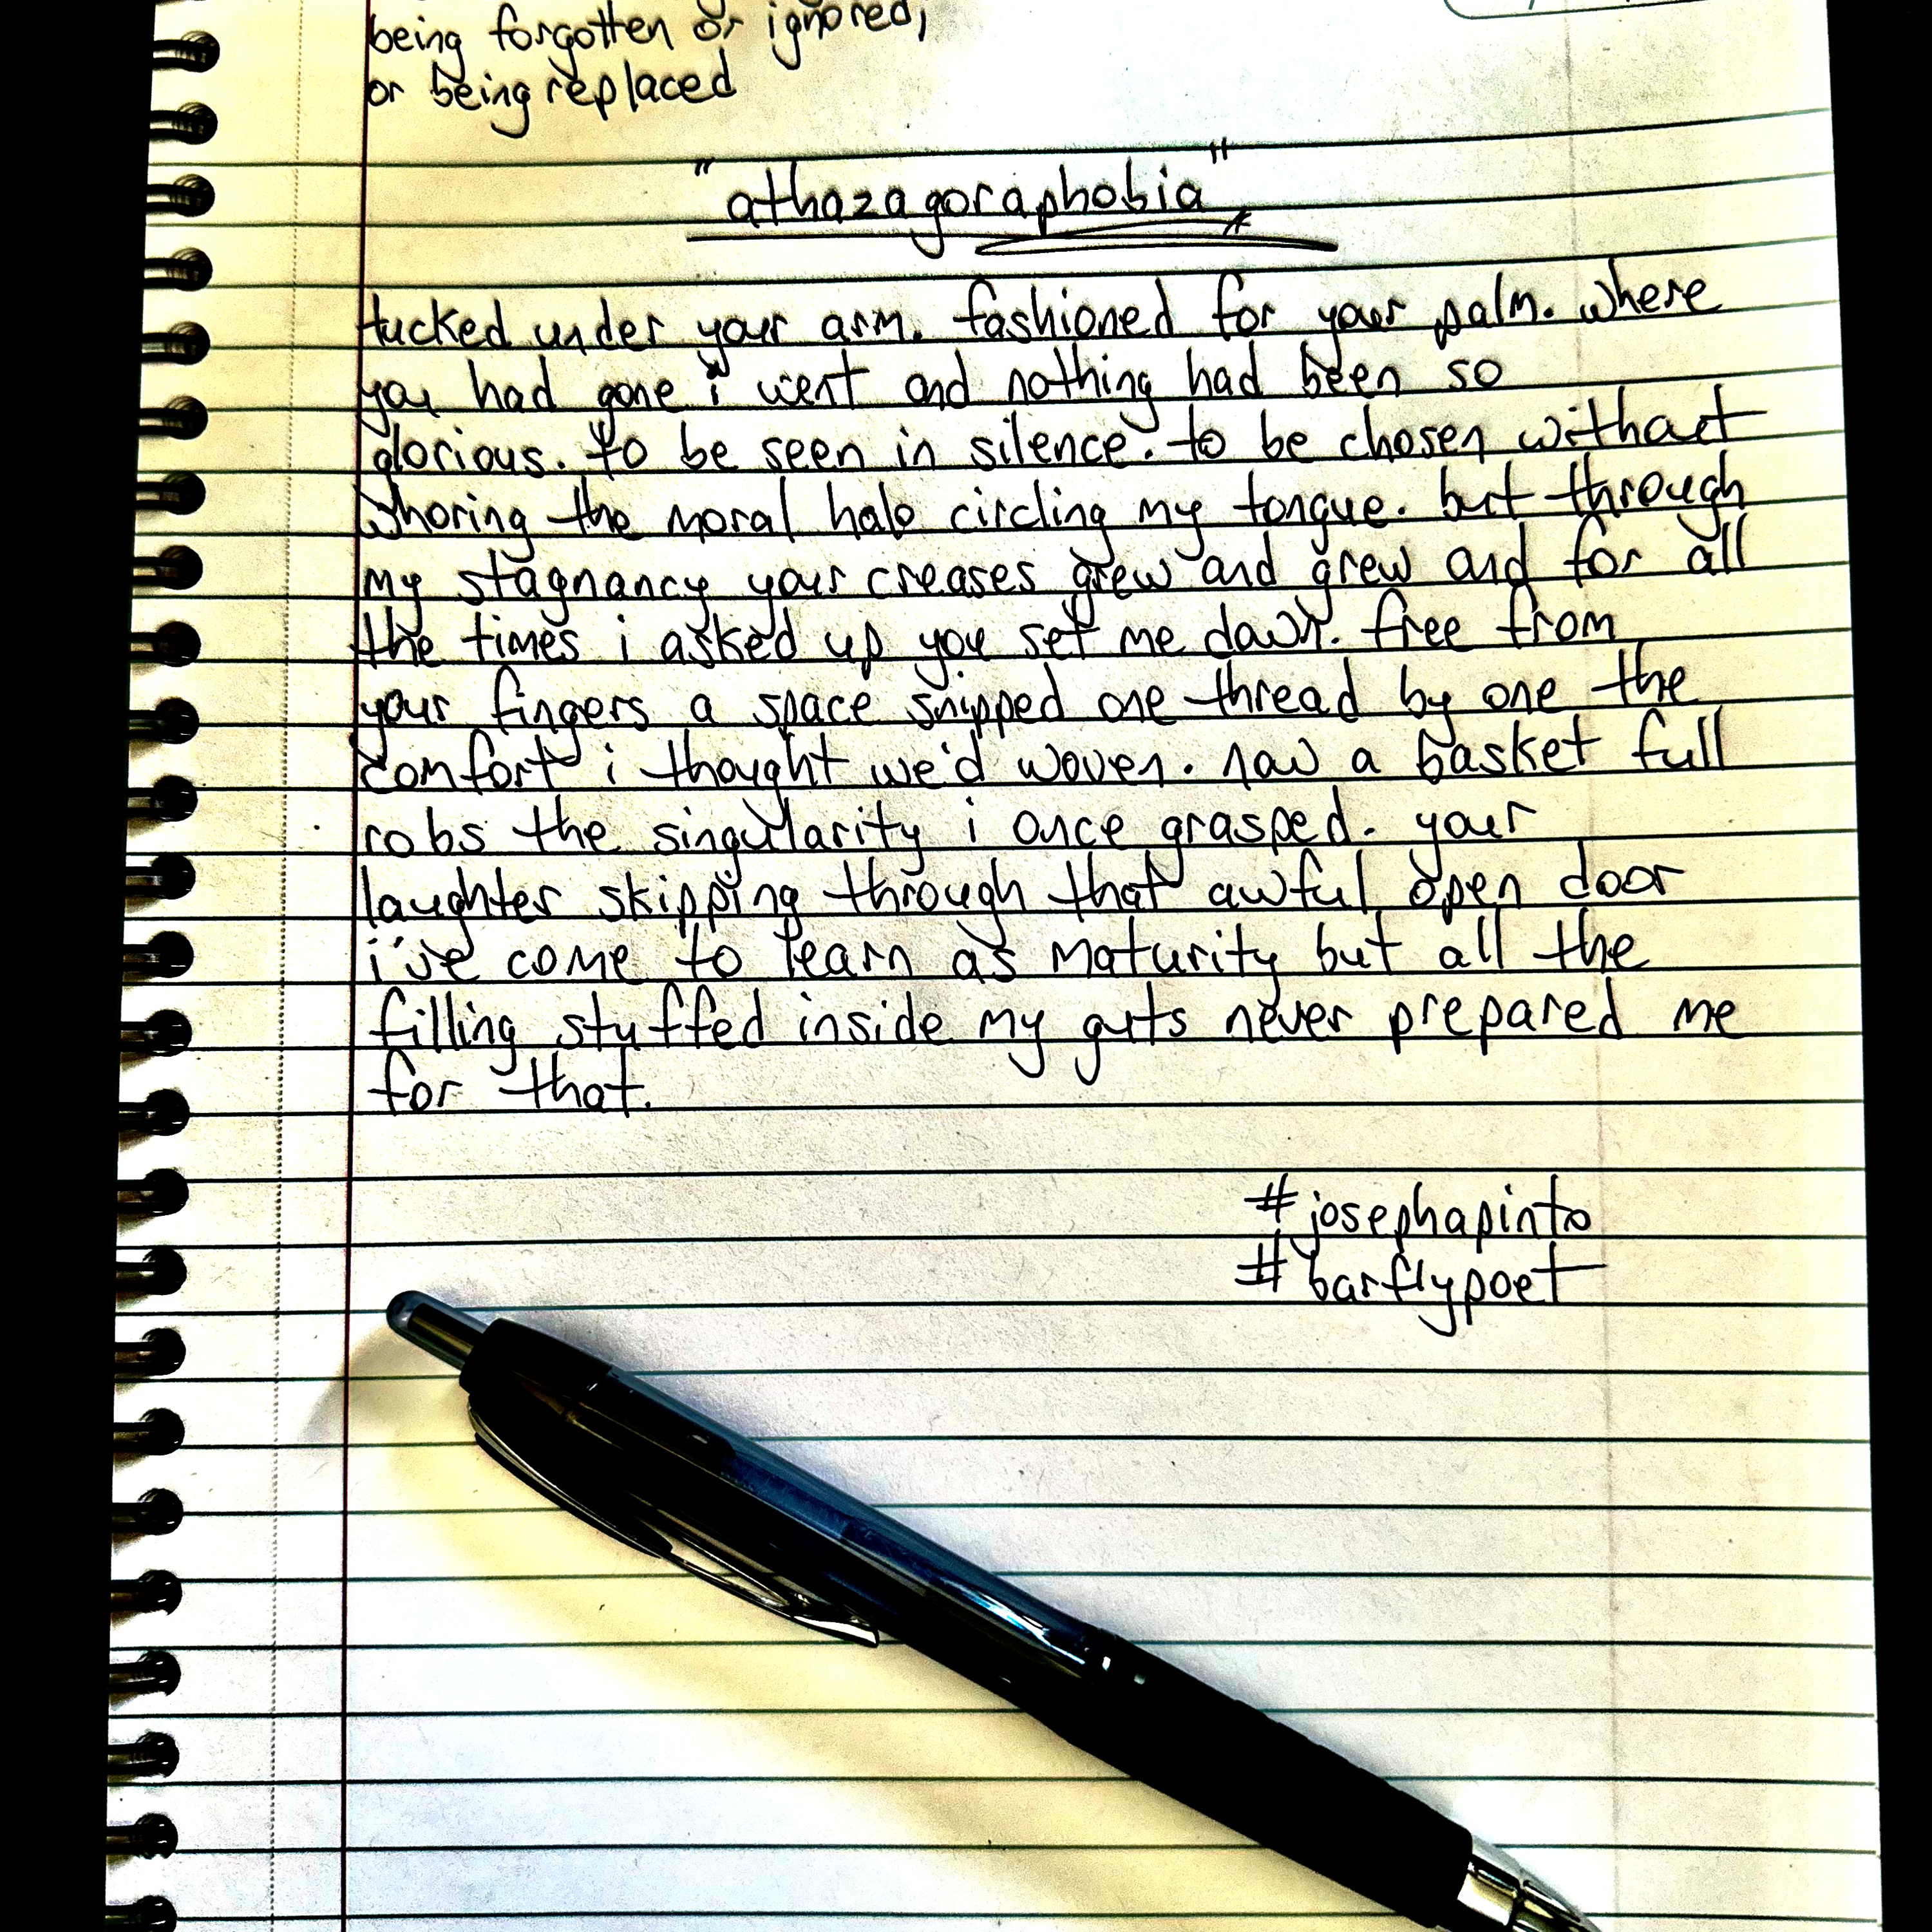 being forgotten or ignored,
or being replaced
"athazagoraphobia"
tucked under your arm. fashioned for your palm. where
you had gone i went and nothing had been so
glorious. to be seen in silence. to be chosen without
whoring the moral halo circling my tongue. but through
my stagnancy your creases grew and grew and for all
the times i asked up you set me down. free from
your fingers a space snipped one thread by one the
comfort i thought we'd woven. now a basket full
robs the singularity i once grasped. your
laughter skipping through that awful open door
i've come to learn as maturity but all the
filling stuffed inside my guts never prepared me
for that.
#josephapinto
#barflypoet